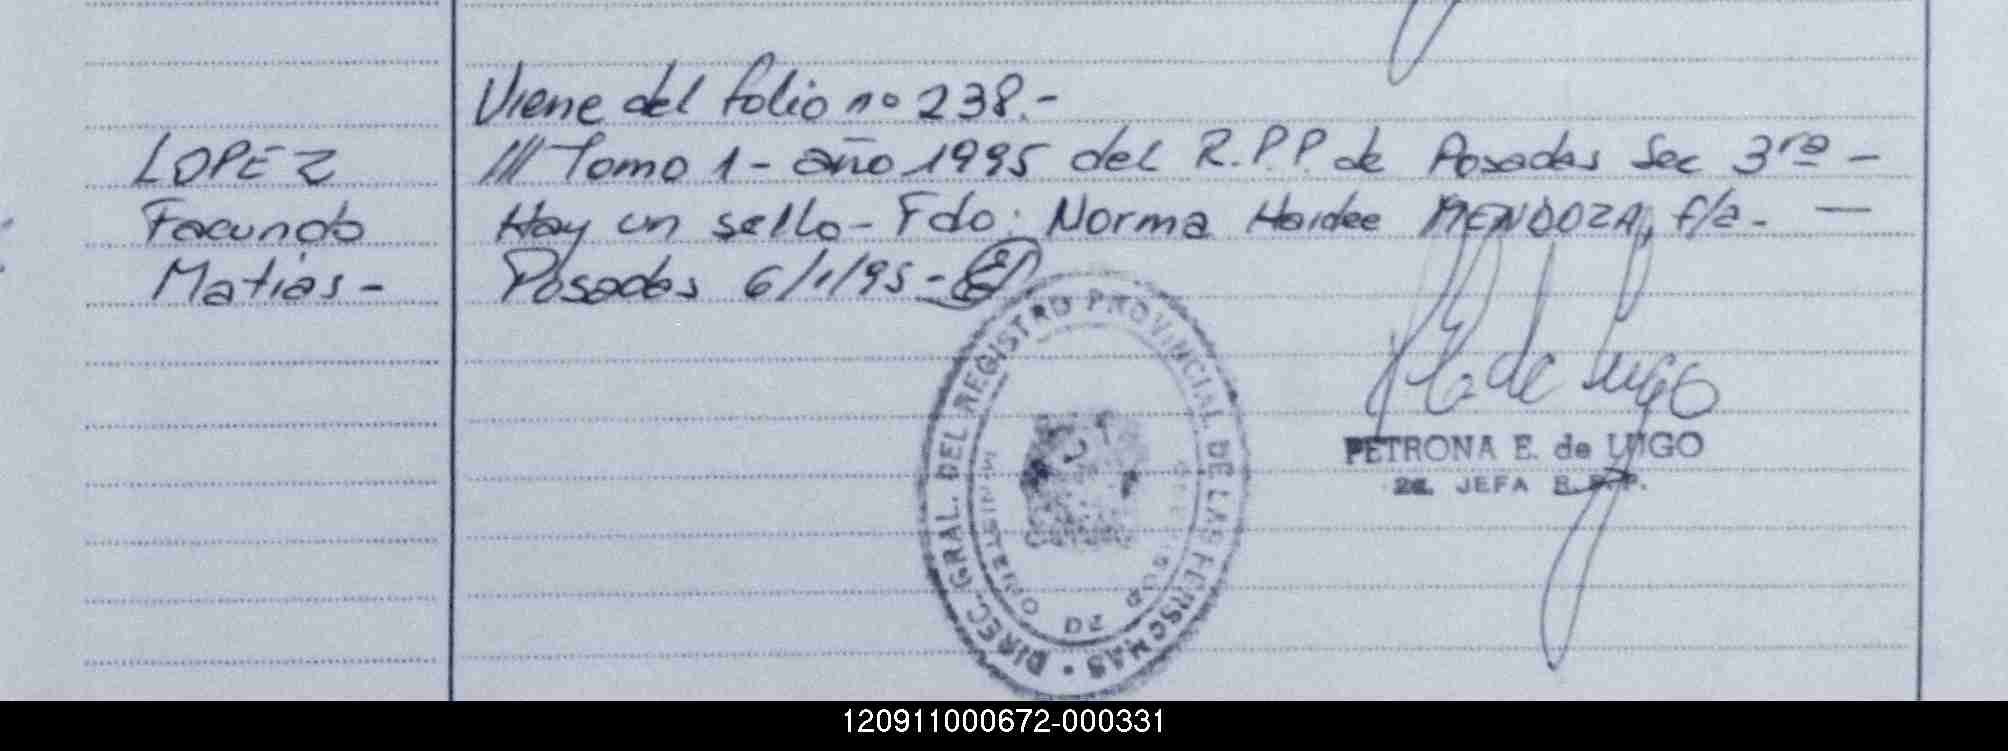 Viene del folio no 238.-
LOPEZ
/// Tomo 1 - año 1995 del R.P.P. de Posadas Sec 3ra -
Facundo
Hay un sello - Fdo: Norma Haidee MENDOZA, f/a. -
Matias -
Posadas 6/1/95 -
DIREC. GRAL. DEL REGISTRO PROVINCIAL DE LAS PERSONAS
MINISTERIO DE GOBIERNO
PETRONA E. de LUGO
2a. JEFA R.P.P.
120911000672-000331